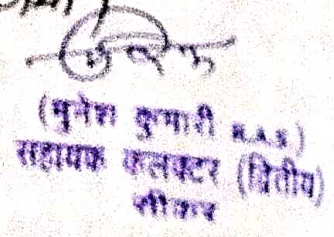 (मुनेश कुमारी R.A.S)
सहायक कलक्टर (द्वितीय)
सीकर